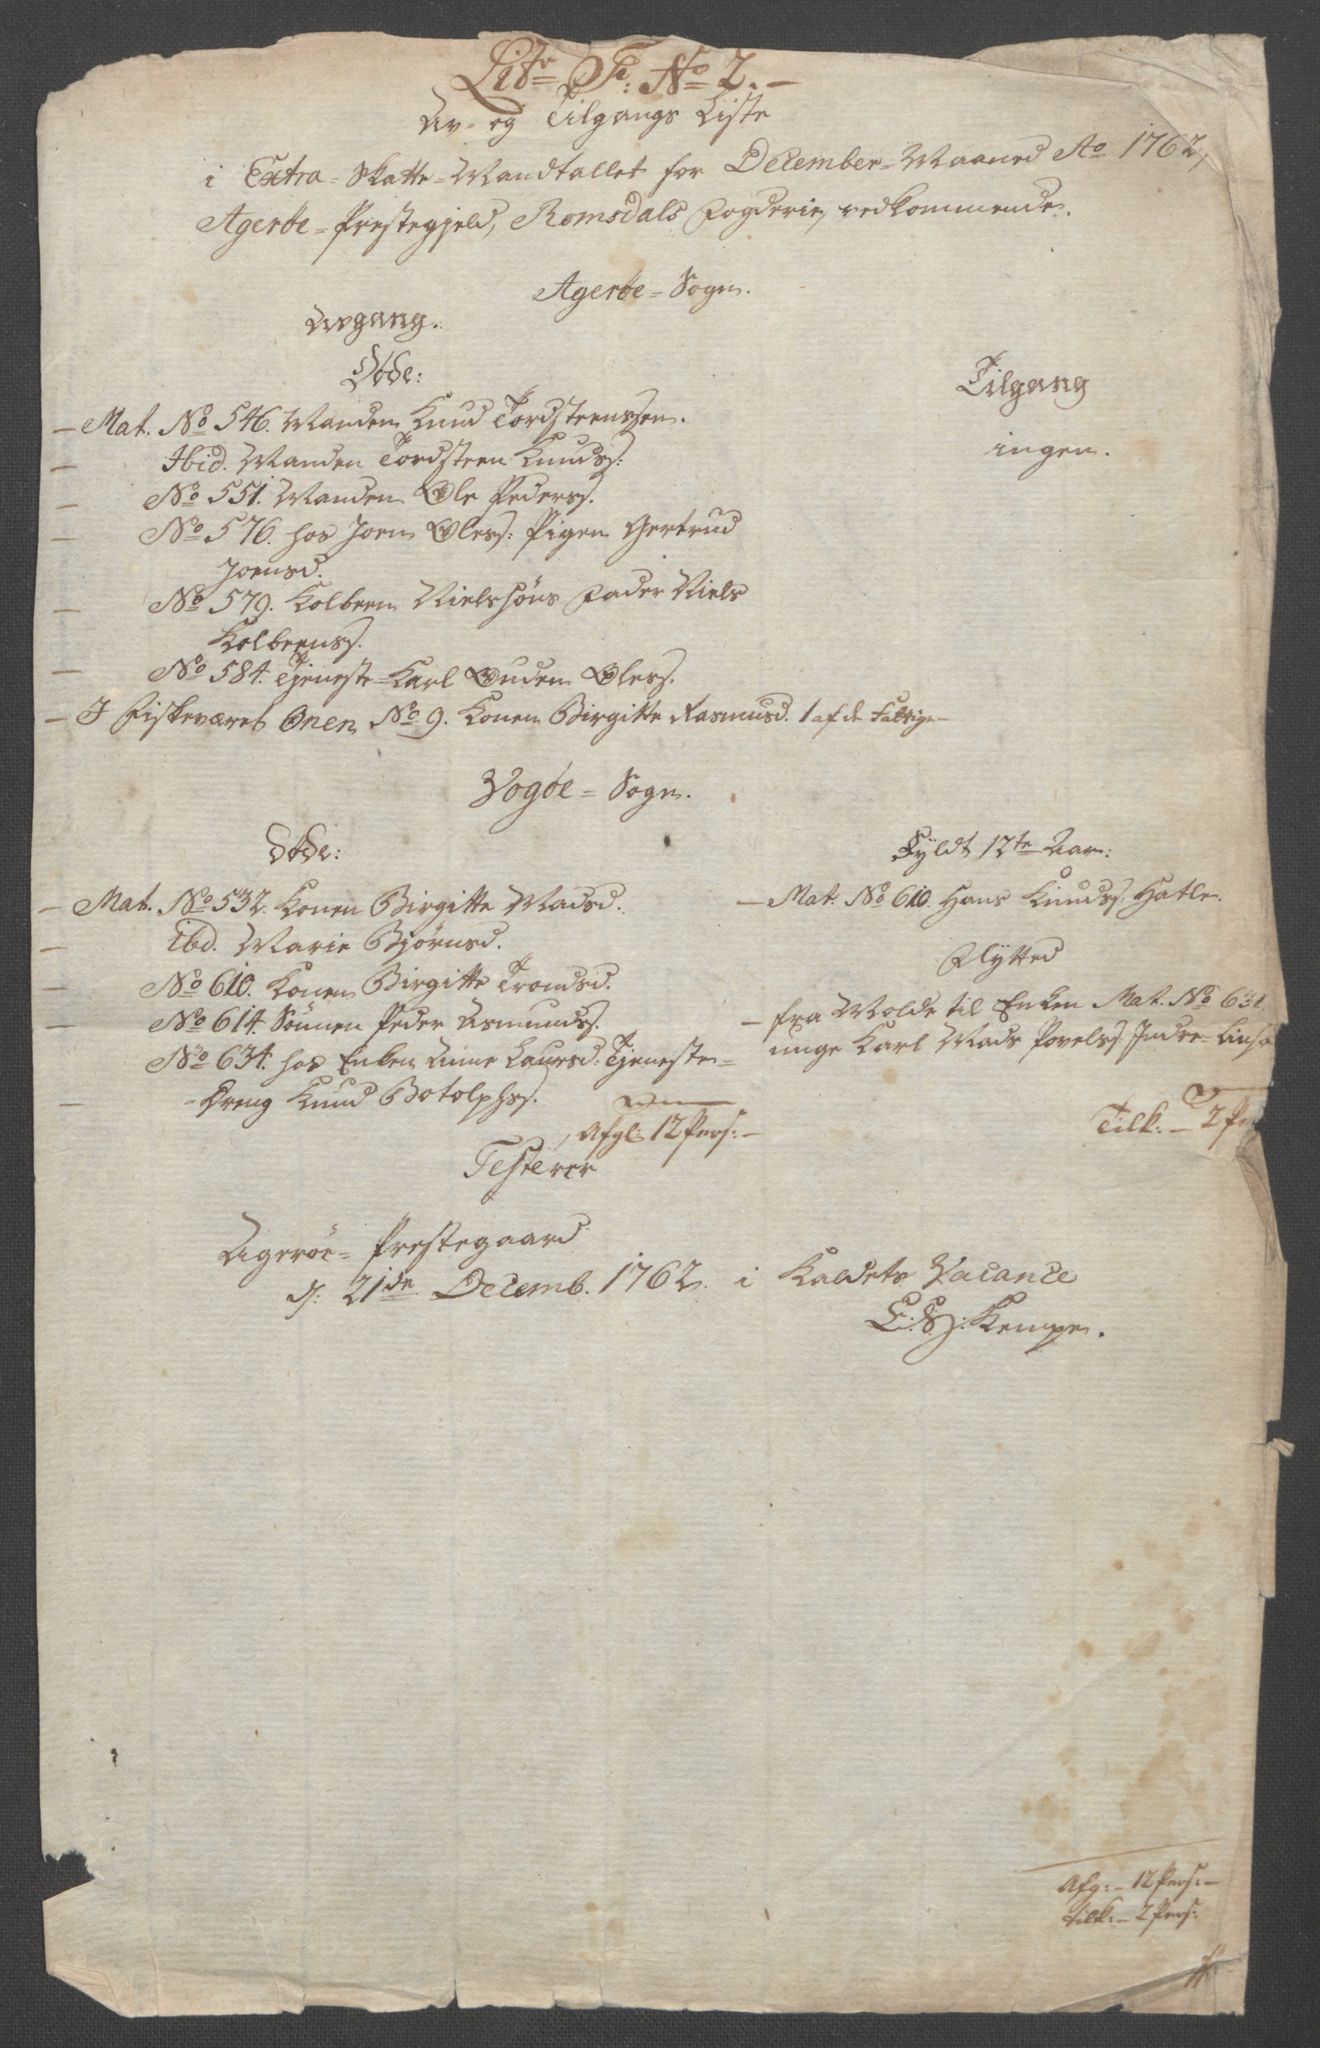 Litr F: No 2.
Av- og Tilgangs Liste
i Extra-Skatte-Mandtallet for December-Maaned Ao 1762,
Agerøe-Prestegjeld, Romsdals Fogderie, vedkommende.
Agerøe-Sogn.
Avgang.
Døde:
Tilgang
ingen.
Mat. No 546. Manden Knud Tordsteenssen.
Ibid. Manden Tordsteen Knuds:
No 551. Manden Ole Peders.
No 576. hos Joen Oles: Pigen Gertrud
Joensd.
No 579. Kolbeen Nielsøns Fader Niels
Kolbeens.
No 584. Tjeneste-Karl Ouden Oles.
I Fiskeværet Onen No 9. Konen Birgitte Rasmusd. 1 af de
Vogøe-Sogn.
Døde:
Mat. No 532. Konen Birgitte Madsd.
ibd. Marie Bjørnsd.
No 610. Konen Birgitte Tronsd.
No 614. Sønnen Peder Asmunds.
No 634. hos Enken Anne Laursd: Tjeneste-
-Dreng Knud Botolphs.
Afgl: 12 Pers:-
Fyldt 12te Aar:
Mat. No 610. Hans Knuds: Hatle.
Flytted
fra Molde til Enken Mat. No 631
unge Karl Mads Povels: Indre-
Tilk: - 2 Pe
Testerer
Agerøe-Prestegaard
d: 21de Decemb. 1762. i Kaldets Vacance
Kempe.
Afg: - 12 Pers:-
tilk: - 2 Pers: